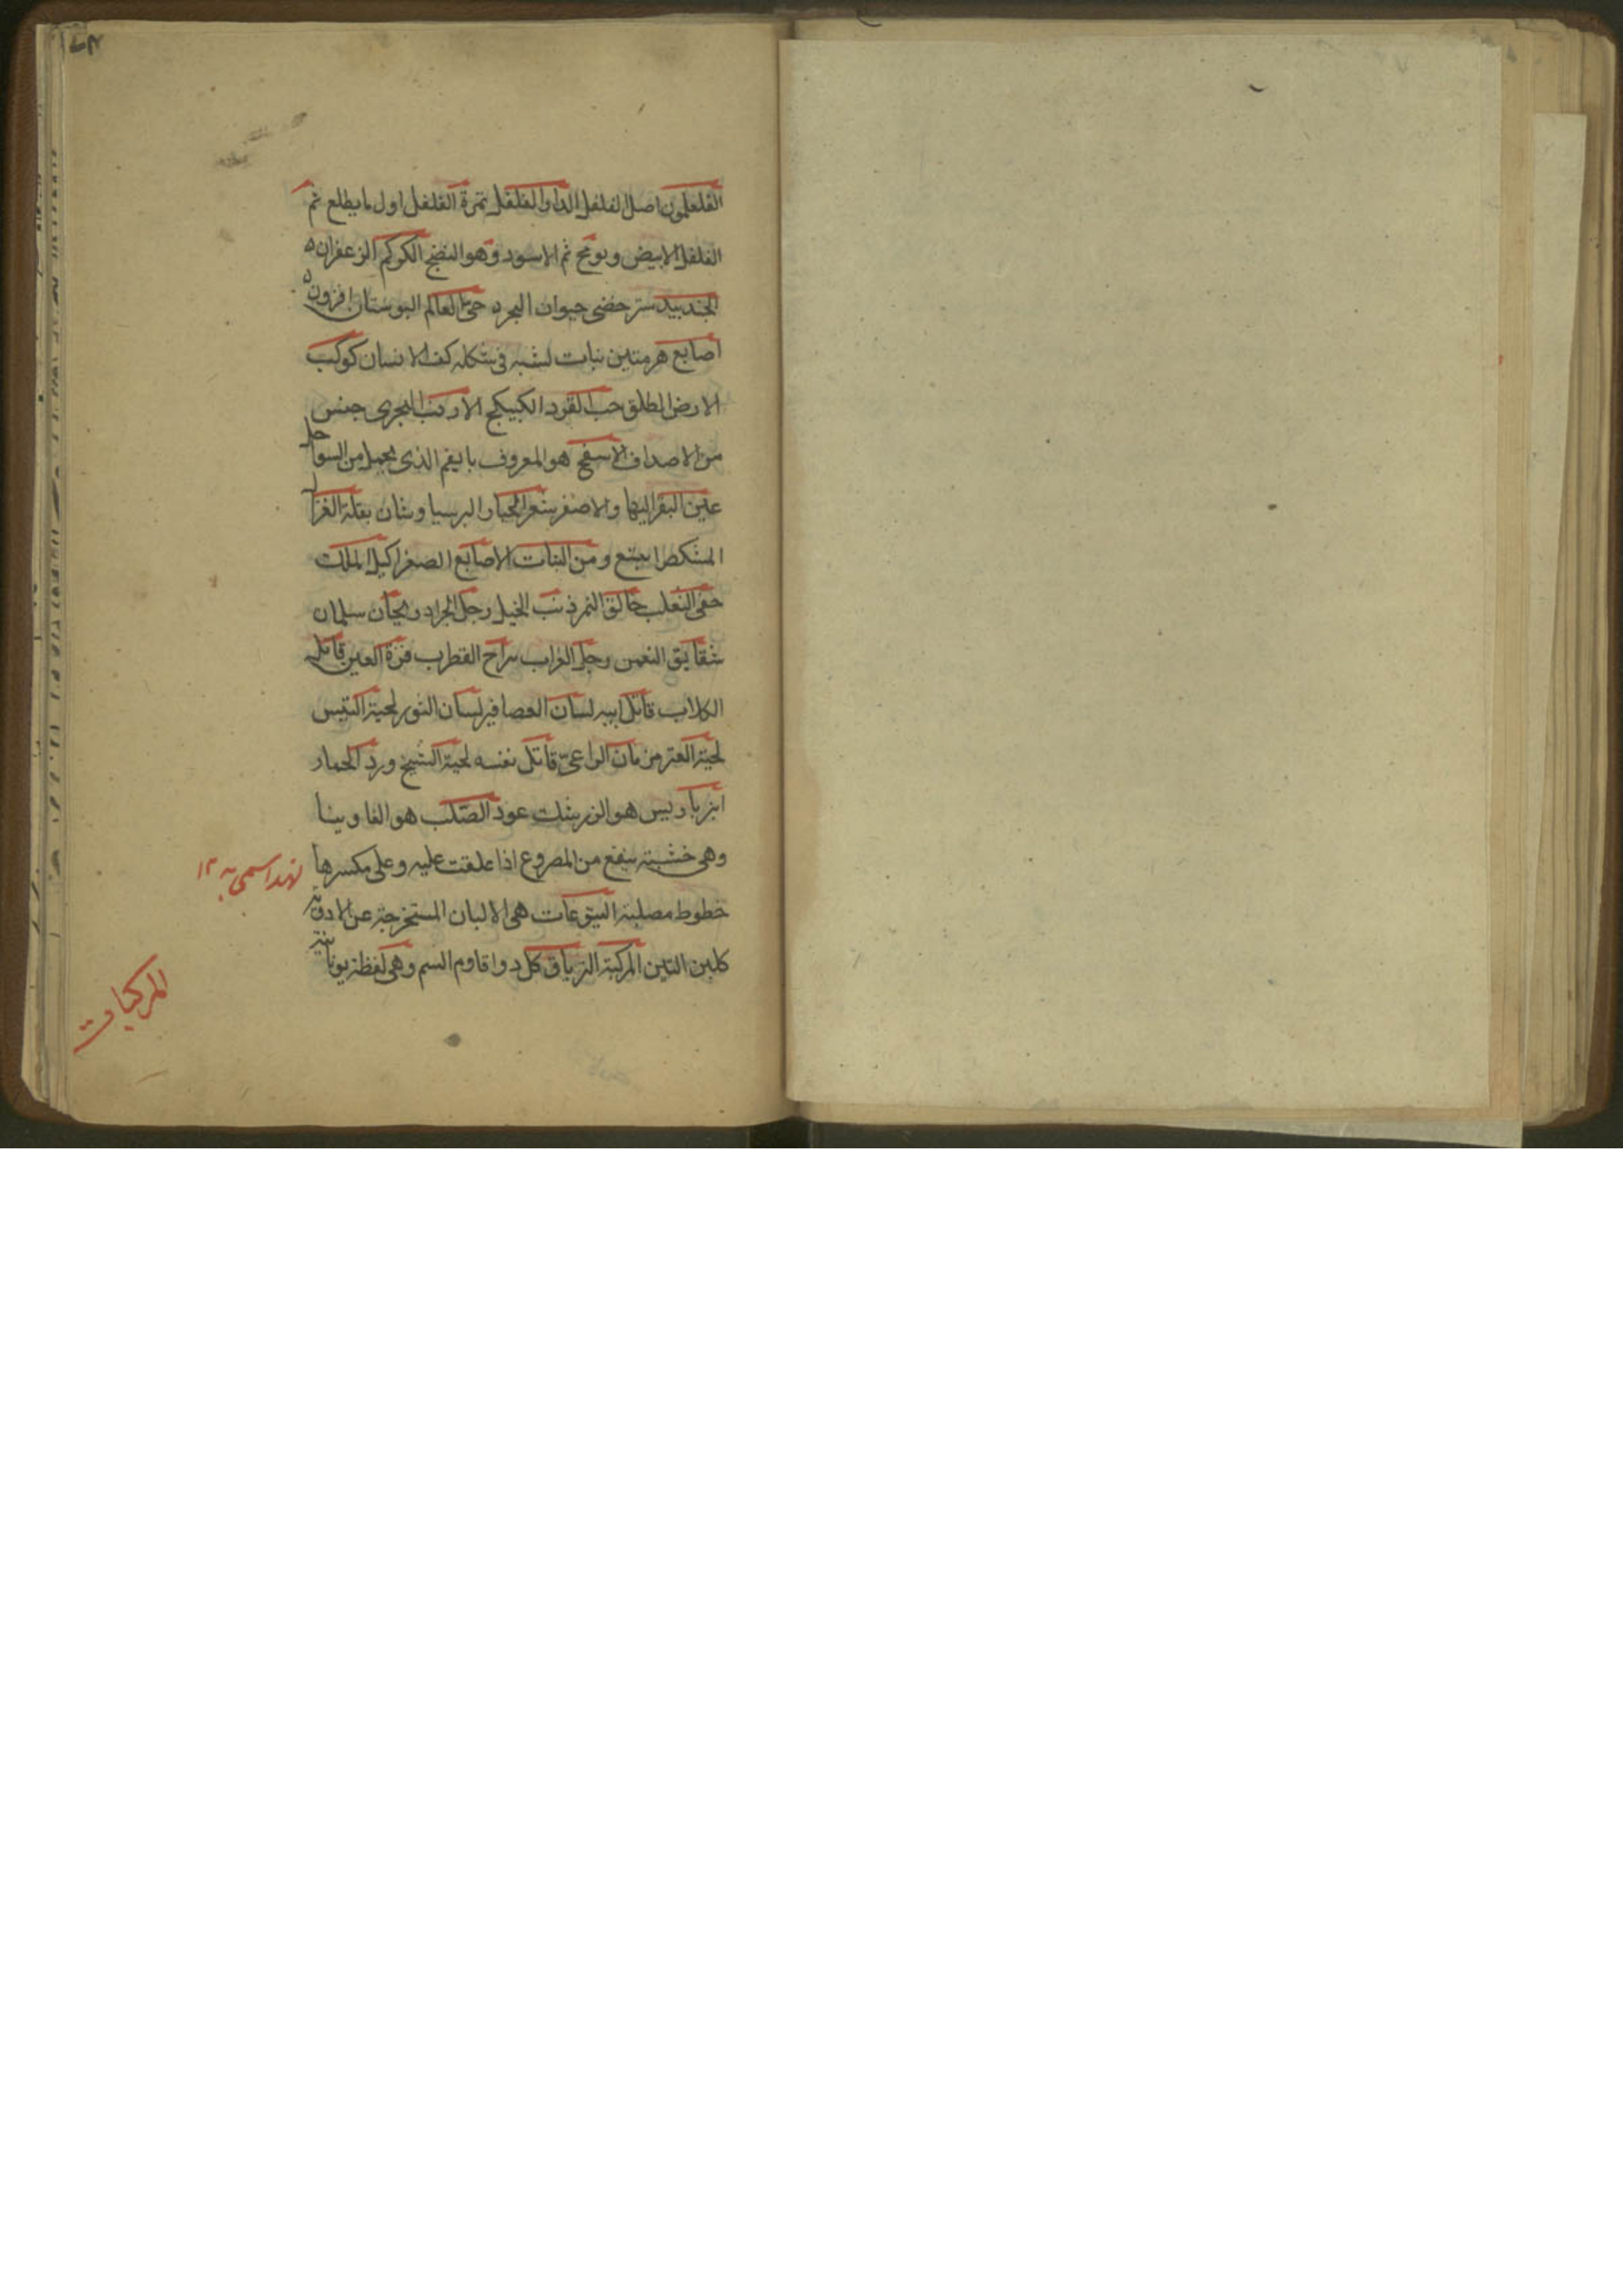 الفلفلمون اصل الفلفل الدار الفلفل ثمرة الفلفل اول ما يطلع ثم
الفلفل الابيض وبوغج ثم الاسود وهو النضج الكركم الزعفران ه
الجندبيدستر خصى حيوان البحر ه حى العالم البوستان افزون ه
اصابع هرمس نبات لشبه فى شكله كف الانسان كوكب
الارض الطلق حب القرد الكبيكج الارنب البحرى جنس
من الاصداف الاسفنج هو المعروف بابغم الذى يحمل من السواحل
عين البقر البها والاصفر شعر الجبار البرسياوشان بقلة الغزال
المشكطرامشيع ومن النبات الاصابع الصفر اكليل الملك
خصى الثعلب خانق النمر ذنب الخيل رجل الجراد ريحان سليمان
شقايق النعمن رجل الغراب سراج القطرب قرة العين قاتل
الكلاب قاتل ابيه لسان العصافير لسان الثور لحية التيس
لحية العنز مزمان الراعى قاتل نفسه لحية الشيخ ورد الحمار
انبرباريس هو الزرشك عود الصلب هو الفاوينا
وهى خشبة ينفع من المصروع اذا علقت عليه وعلى مكسرها
خطوط مصلبة اليتوعات هى الالبان المستخرجة عن الادوية
كلبن التين المركبة الترياق كل دوا قاوم السم وهى لفظة يونانية
لهذا سمى به ١٢
المركبات